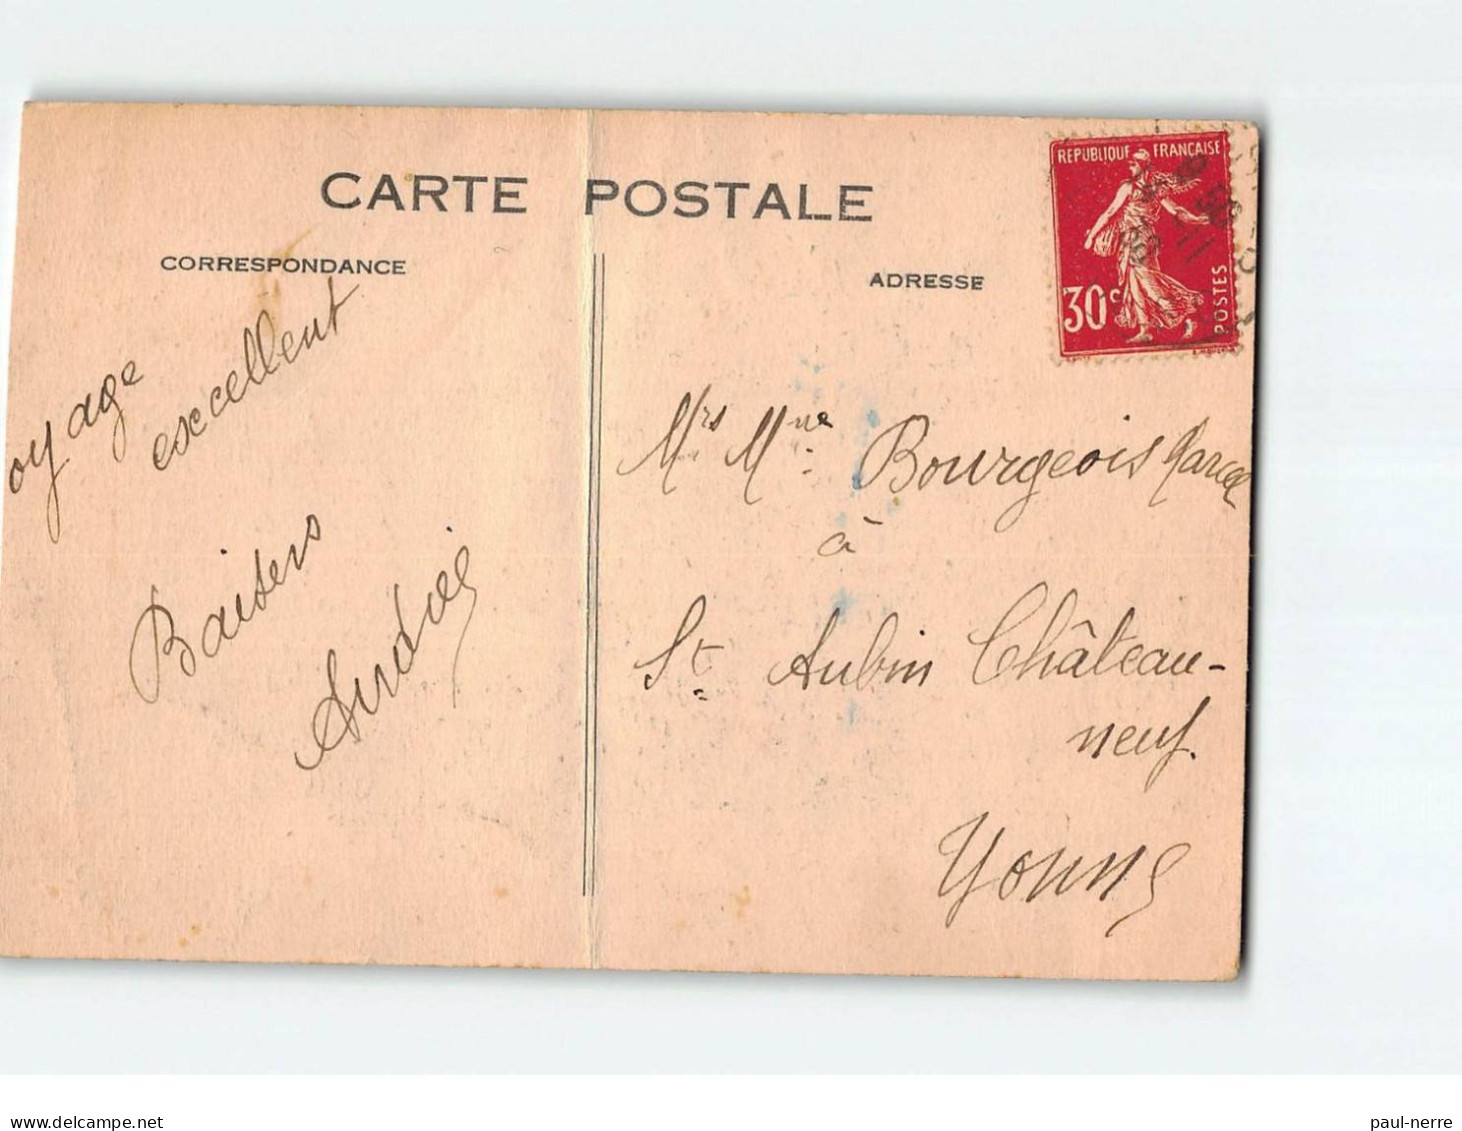 CARTE POSTALE
CORRESPONDANCE
oyage
excellent
Baisers
ADRESSE
REPUBLIQUE FRANÇAISE
30c
POSTES
Mrs Mme Bourgeois Marcel
à
St Aubin Château-
neuf.
Yonne
paul-nerre